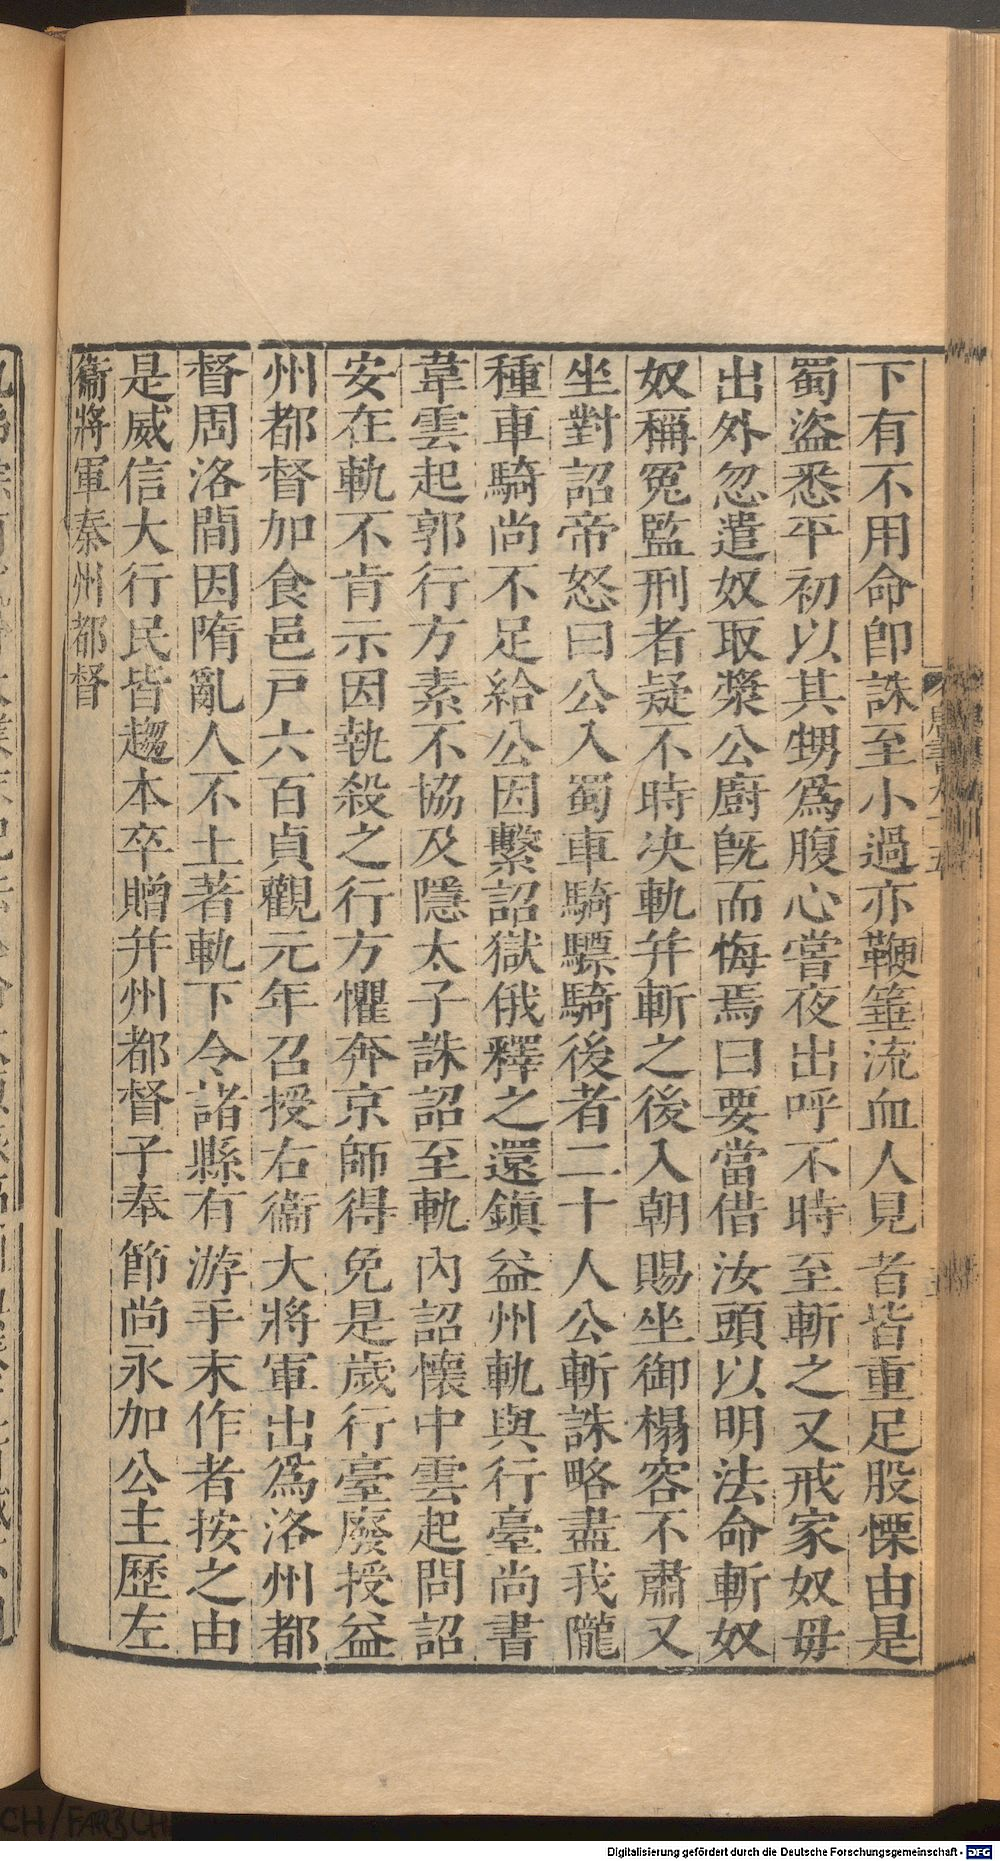 下有不用命卽誅至小過亦鞭箠流血人見者皆重足股慄由是
蜀盜悉平初以其甥爲腹心嘗夜出呼不時至斬之又戒家奴毋
出外忽遣奴取漿公廚旣而悔焉曰要當借汝頭以明法命斬奴
奴稱冤監刑者疑不時决軌幷斬之後入朝賜坐御榻容不肅又
坐對詔帝怒曰公入蜀車騎驃騎後者二十人公斬誅略盡我隴
種車騎尚不足給公因繫詔獄俄釋之還鎭益州軌與行臺尚書
韋雲起郭行方素不協及隱太子誅詔至軌內詔懷中雲起問詔
安在軌不肯示因執殺之行方懼奔京師得免是歲行臺廢授益
州都督加食邑戸六百貞觀元年召授右衞大將軍出爲洛州都
督周洛間因隋亂人不土著軌下令諸縣有游手末作者按之由
是威信大行民皆趨本卒贈幷州都督子奉節尚永加公主歷左
衞將軍秦州都督
Digitalisierung gefördert durch die Deutsche Forschungsgemeinschaft - DFG